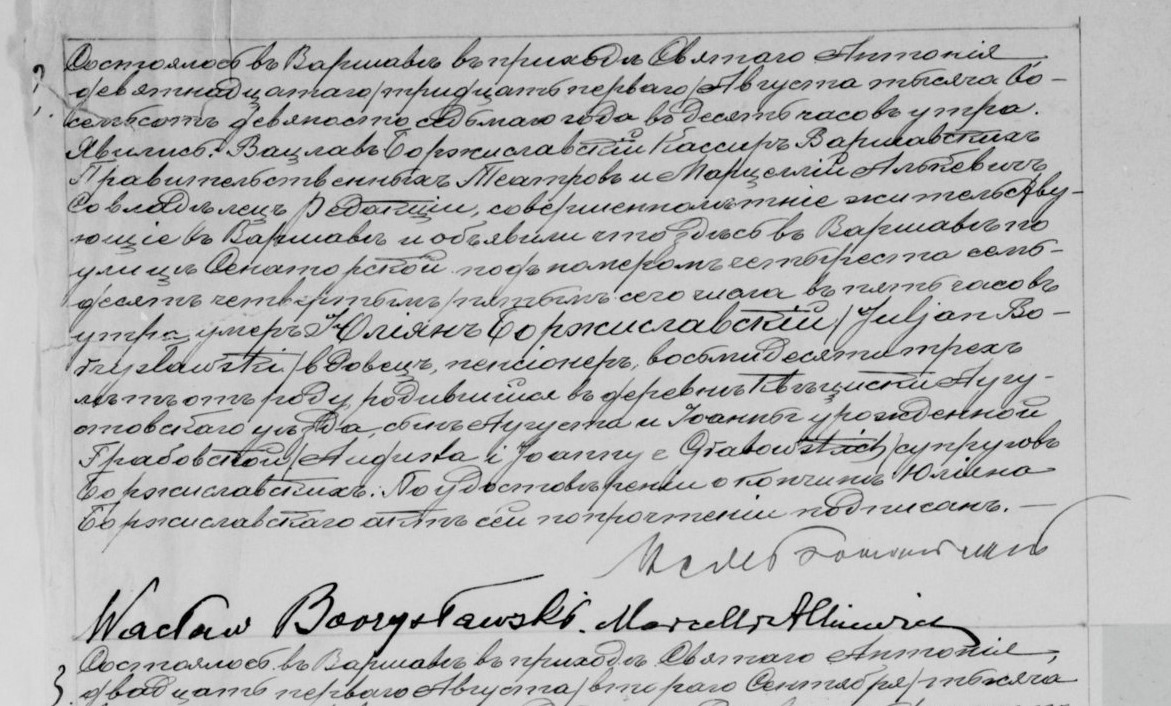 Состоялось въ Варшавѣ въ приходѣ Святаго Антонія
девятнадцатаго/тридцать перваго/Августа тысяча во-
семьсотъ девяносто седьмаго года въ десять часовъ утра.
Явились: Вацлавъ Боржиславскій Кассиръ Варшавскихъ
Правительственныхъ Театровъ и Марцеллій Алькевичъ
Совладѣлецъ Редакціи, совершеннолѣтніе жительству-
ющіе въ Варшавѣ и объявили что здѣсь въ Варшавѣ по
улицѣ Сенаторской подъ номеромъ четыреста семь-
десятъ четвертымъ/пятымъ сего числа въ пять часовъ
утра умеръ Юліянъ Боржиславскій/Juljan Bo-
rzysławski/вдовецъ, пенсіонеръ, восьмидесяти трехъ
лѣтъ отъ роду, родившійся въ деревнѣ Авгу-
стовскаго уѣзда, сынъ Августа и Іоанны урожденной
Грабовской/Augusta i Joanny z Grabowskich/супруговъ
Боржиславскихъ. По удостовѣреніи о кончинѣ Юліана
Боржиславскаго актъ сей по прочтеніи подписанъ. —
Wacław Borzysławski. Marcelli Alkiewicz
Состоялось въ Варшавѣ въ приходѣ Святаго Антонія,
двадцать перваго Августа/втораго Сентября/тысяча